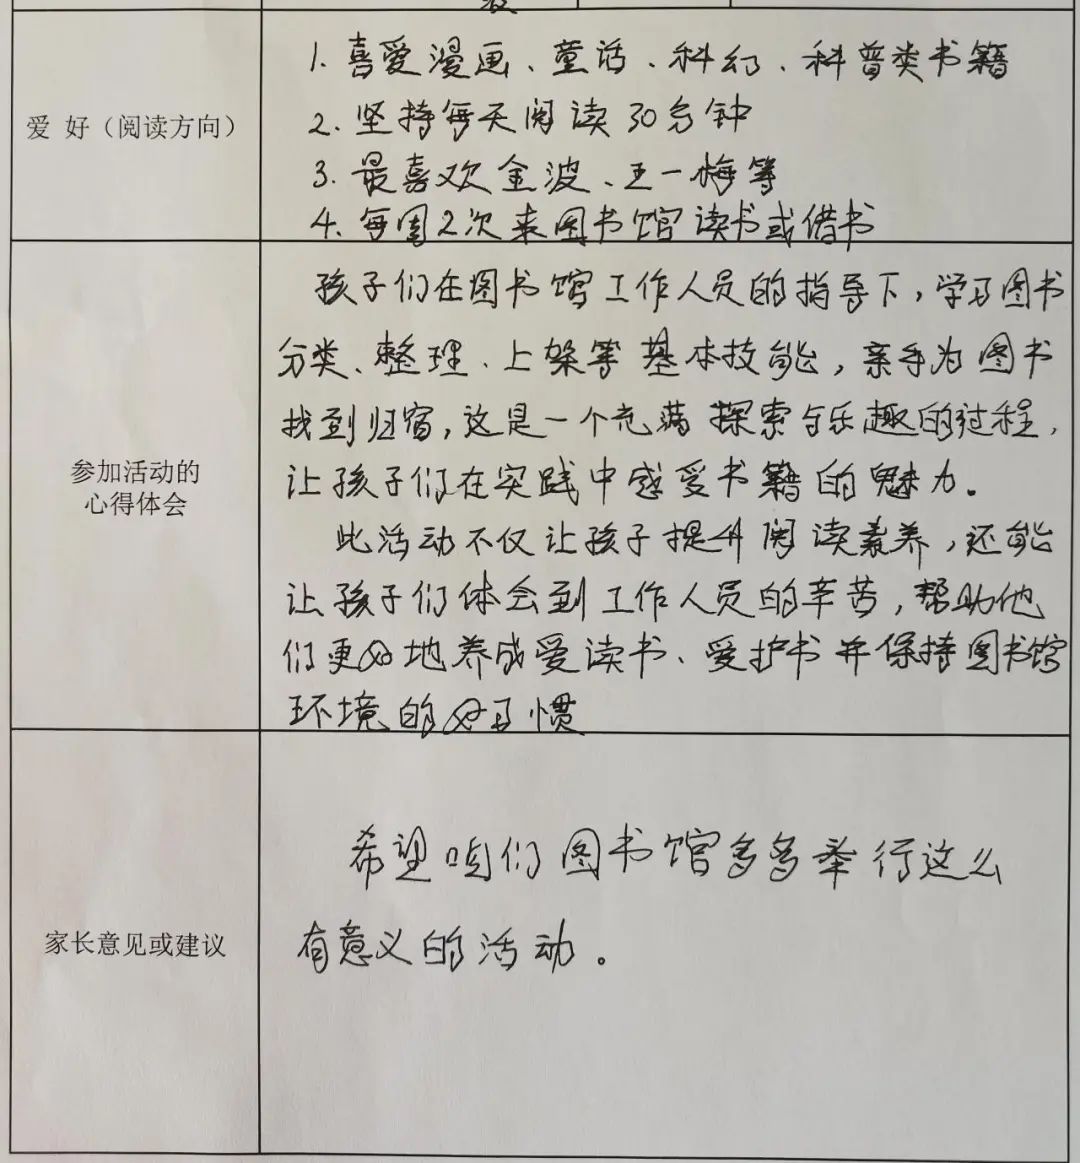 爱 好（阅读方向）
1. 喜爱漫画、童话、科幻、科普类书籍
2. 坚持每天阅读30分钟
3. 最喜欢金波、王一梅等
4. 每周2次来图书馆读书或借书
参加活动的
心得体会
孩子们在图书馆工作人员的指导下，学习图书
分类、整理、上架等基本技能，亲手为图书
找到归宿，这是一个充满探索与乐趣的过程，
让孩子们在实践中感受书籍的魅力。
此活动不仅让孩子提升阅读素养，还能
让孩子们体会到工作人员的辛苦，帮助他
们更好地养成爱读书、爱护书并保持图书馆
环境的好习惯
家长意见或建议
希望咱们图书馆多多举行这么
有意义的活动。